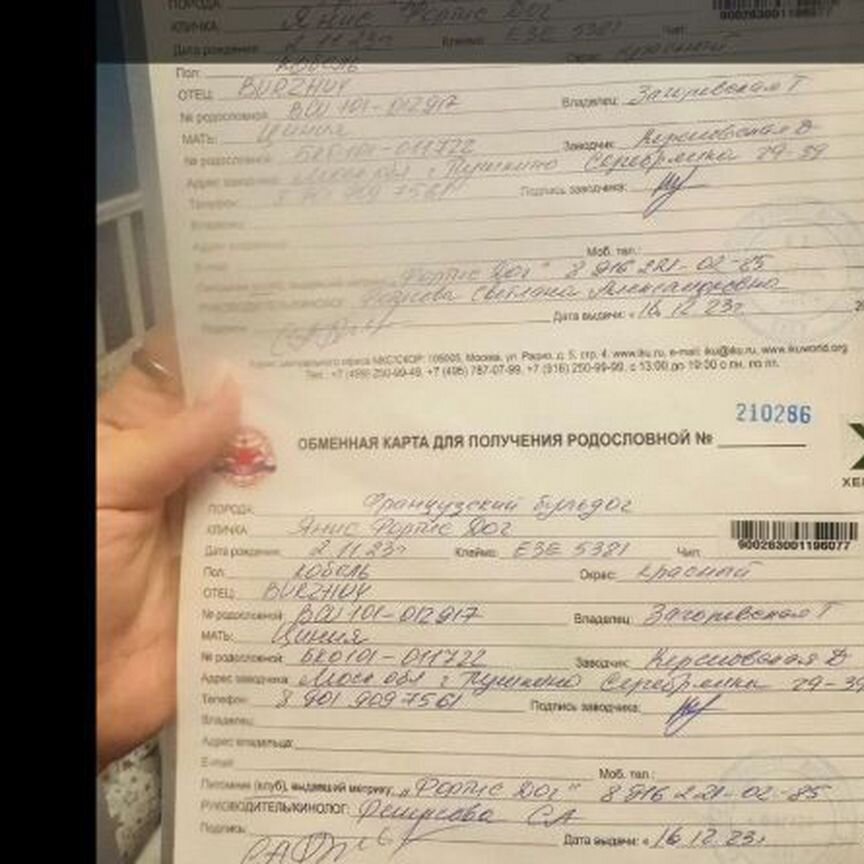 ПОРОДА
КЛИЧКА Янис Фортис Дог 900263001196077
Дата рождения 2 11 23г Клеймо EЗE 5381 Чип:
Пол: кобель Окрас: красный
ОТЕЦ: BURZHUY
№ родословной BCU 101-012917 Владелец: Загоревская Т
МАТЬ: Циния
№ родословной: БКО101-011722 Заводчик:
Адрес заводчика Моск обл г Пушкино Серебрянка 29-39
Телефон: 8 901 909 7561 Подпись заводчика:
Владелец:
Адрес владельца:
E-mail: Моб. тел.:
"Фортис Дог" 8 916 221-02-85
РУКОВОДИТЕЛЬ/КИНОЛОГ: Светлана Александровна
Подпись: Дата выдачи: « 16. 12. 23г.
Адрес центрального офиса МКС/СКОР: 105005, Москва, ул. Радио, д. 5, стр. 4; www.iku.ru, e-mail: iku@iku.ru, www.ikuworld.org
Тел.: +7 (499) 250-99-49, +7 (495) 787-07-99, +7 (916) 250-99-99, с 13:00 до 19:00 с пн. по пт.
210286
ОБМЕННАЯ КАРТА ДЛЯ ПОЛУЧЕНИЯ РОДОСЛОВНОЙ №
ПОРОДА Французский бульдог
КЛИЧКА: Янис Фортис Дог
Дата рождения: 2 11 23г Клеймо: EЗE 5381 Чип: 900263001196077
Пол: кобель Окрас: красный
ОТЕЦ: BURZHUY
№ родословной: BCU 101-012917 Владелец: Загоревская Т
МАТЬ: Циния
№ родословной: БКО101-011722 Заводчик:
Адрес заводчика Моск обл г Пушкино Серебрянка 29-39
Телефон: 8 901 909 7561 Подпись заводчика:
Владелец:
Адрес владельца:
E-mail: Моб. тел.:
Питомник (клуб), выдавший метрику: "Фортис Дог" 8 916 221-02-85
РУКОВОДИТЕЛЬ/КИНОЛОГ: СА
Подпись: Дата выдачи: « 16. 12. 23г